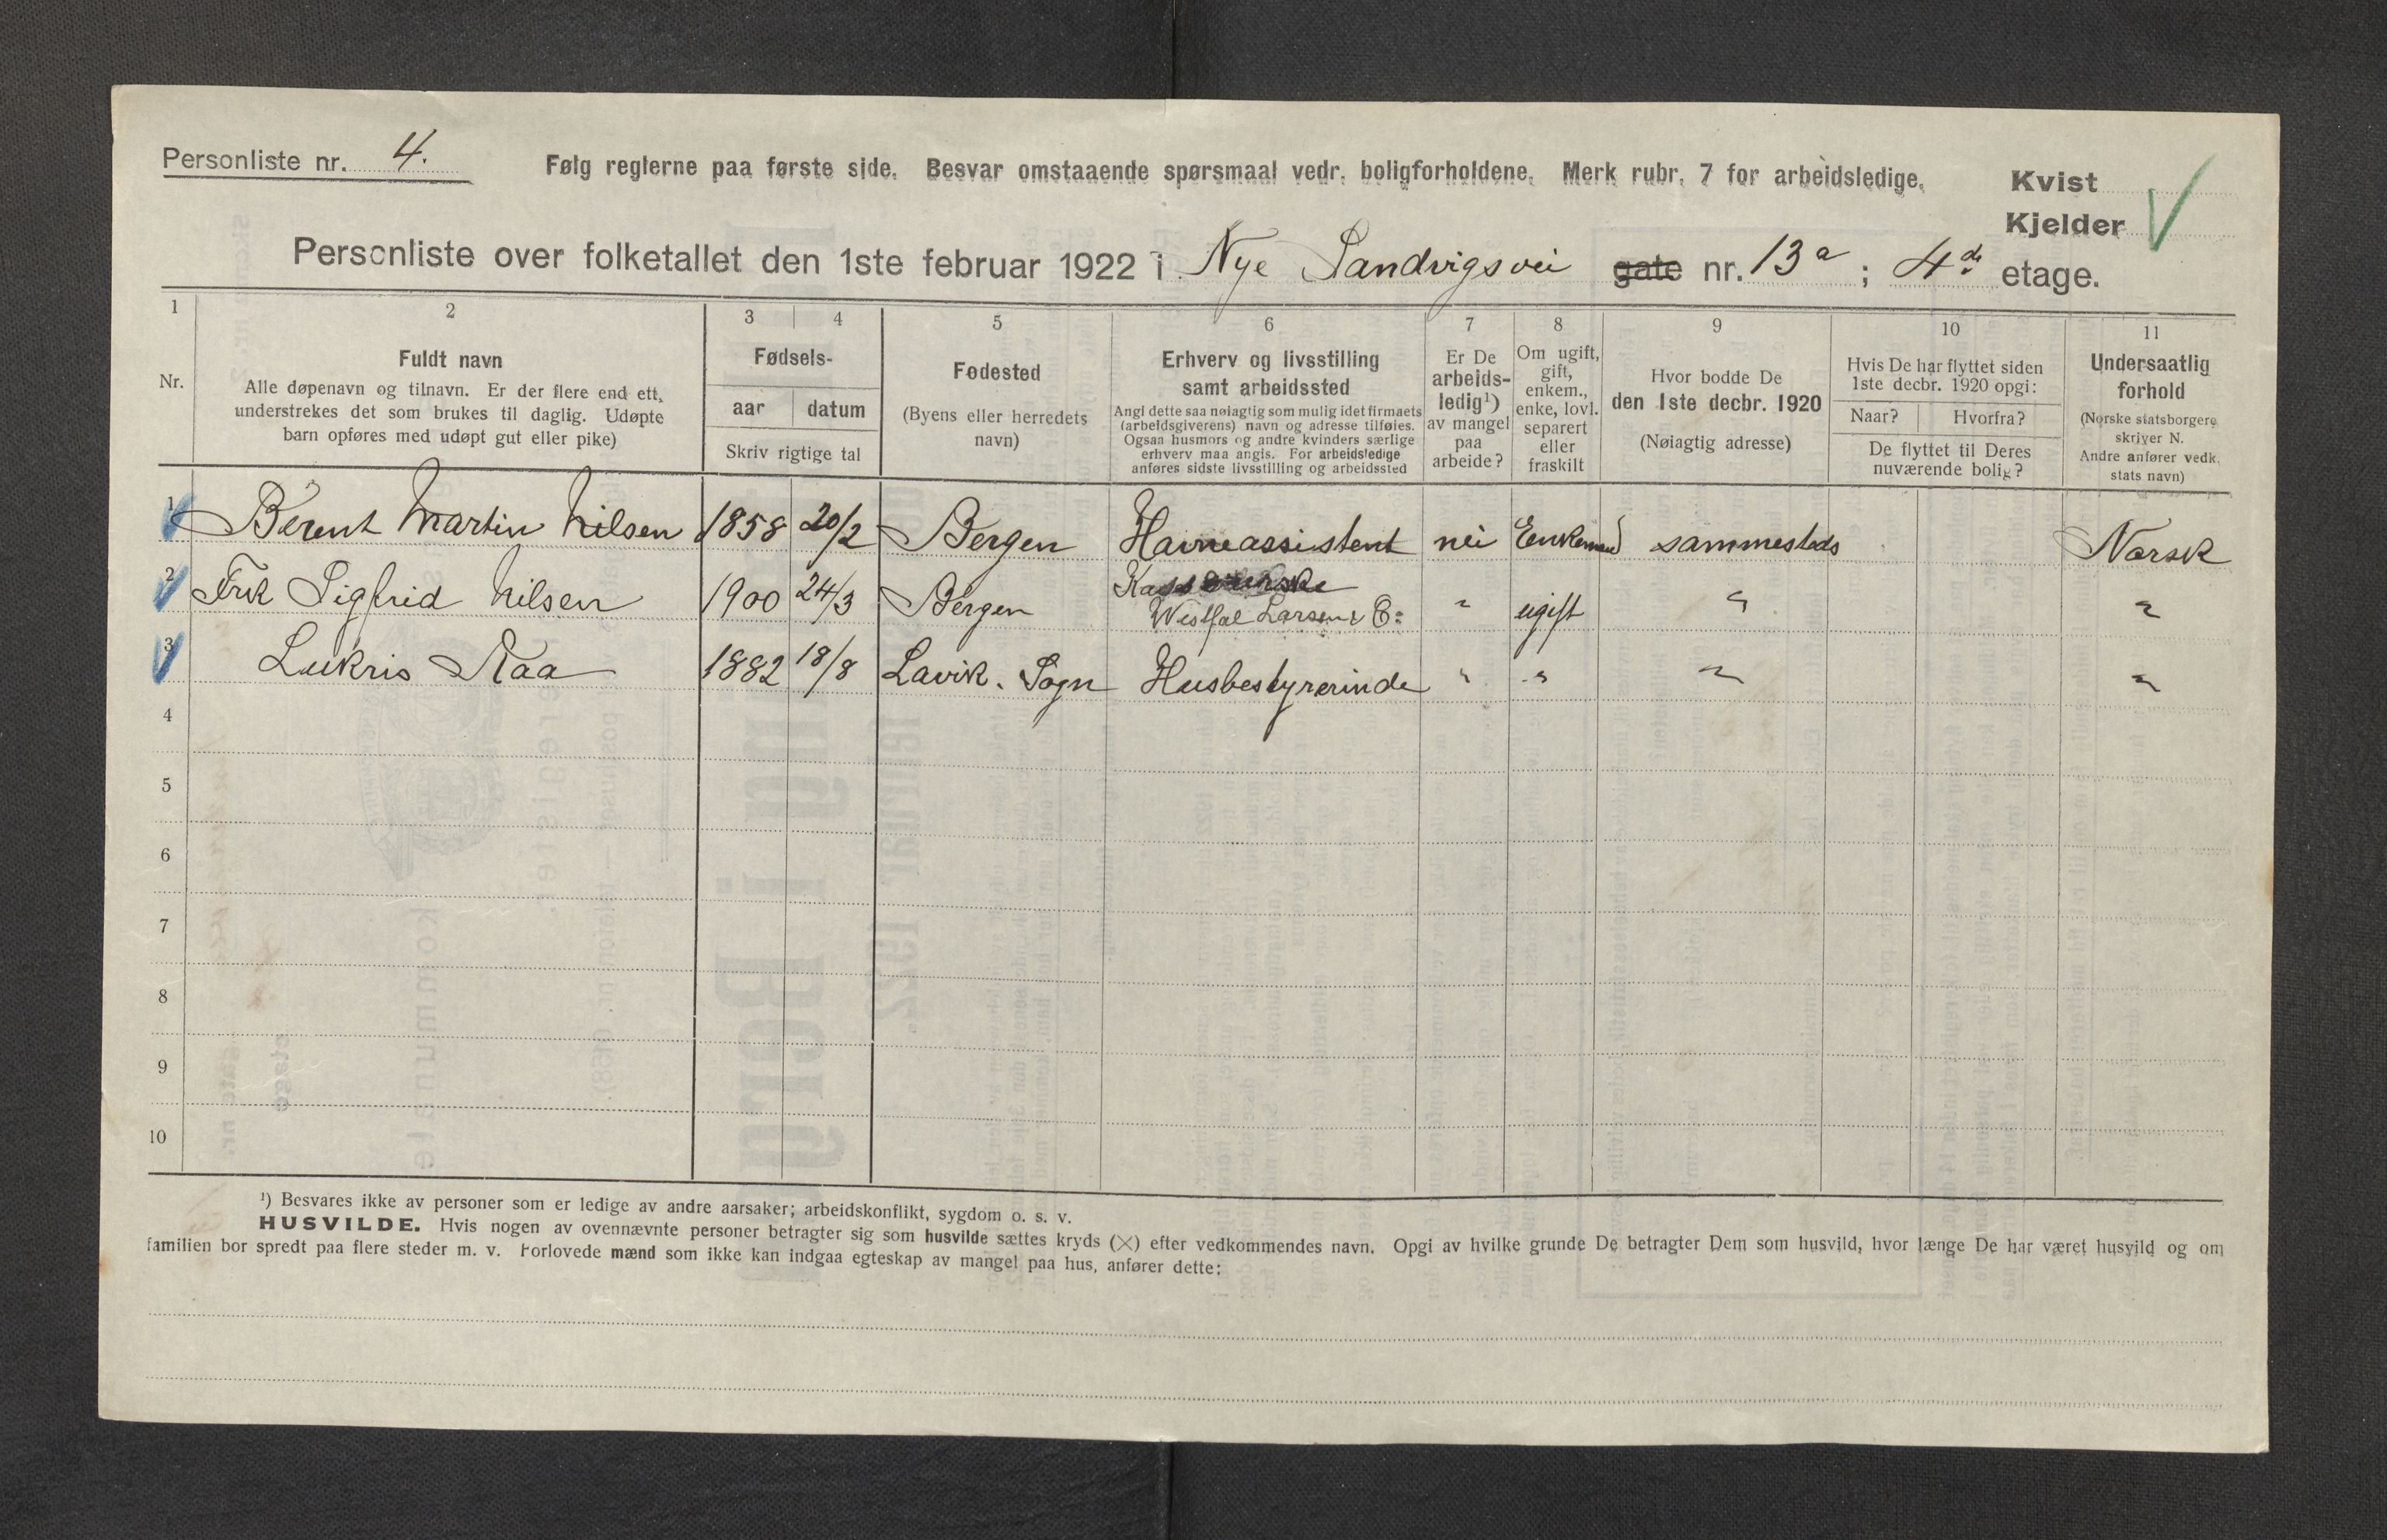 Personliste nr. 4.
Følg reglerne paa første side. Besvar omstaaende spørsmaal vedr. boligforholdene. Merk rubr. 7 for arbeidsledige.
Kvist
Kjelder
Personliste over folketallet den 1ste februar 1922 i Nye Sandvigsvei gate nr. 13a ; 4de etage.
1 2 3 4 5 6 7 8 9 10 11
Nr.
Fuldt navn
Alle døpenavn og tilnavn. Er der flere end ett,
understrekes det som brukes til daglig. Udøpte
barn opføres med udøpt gut eller pike)
Fødsels-
aar datum
Skriv rigtige tal
Fødested
(Byens eller herredets
navn)
Erhverv og livsstilling
samt arbeidssted
Angi dette saa nøiagtig som mulig idet firmaets
(arbeidsgiverens) navn og adresse tilføies.
Ogsaa husmors og andre kvinders særlige
erhverv maa angis. For arbeidsledige
anføres sidste livsstilling og arbeidssted
Er De
arbeids-
ledig¹)
av mangel
paa
arbeide?
Om ugift,
gift,
enkem.,
enke, lovl.
separert
eller
fraskilt
Hvor bodde De
den 1ste decbr. 1920
(Nøiagtig adresse)
Hvis De har flyttet siden
1ste decbr. 1920 opgi:
Naar? Hvorfra?
De flyttet til Deres
nuværende bolig?
Undersaatlig
forhold
(Norske statsborgere
skriver N.
Andre anfører vedk.
stats navn)
1 Berent Martin Nilsen 1858 20/2 Bergen Havneassistent nei Enkemand sammesteds Norsk
2 Frk Sigfrid Nilsen 1900 24/3 Bergen
Westfal Larsen & Co " ugift " "
3 Lukris Aaa 1882 18/8 Lavik. Sogn Husbestyrerinde " " " "
4
5
6
7
8
9
10
¹) Besvares ikke av personer som er ledige av andre aarsaker; arbeidskonflikt, sygdom o. s. v.
HUSVILDE. Hvis nogen av ovennævnte personer betragter sig som husvilde sættes kryds (×) efter vedkommendes navn. Opgi av hvilke grunde De betragter Dem som husvild, hvor længe De har været husvild og om
familien bor spredt paa flere steder m. v. Forlovede mænd som ikke kan indgaa egteskap av mangel paa hus, anfører dette: